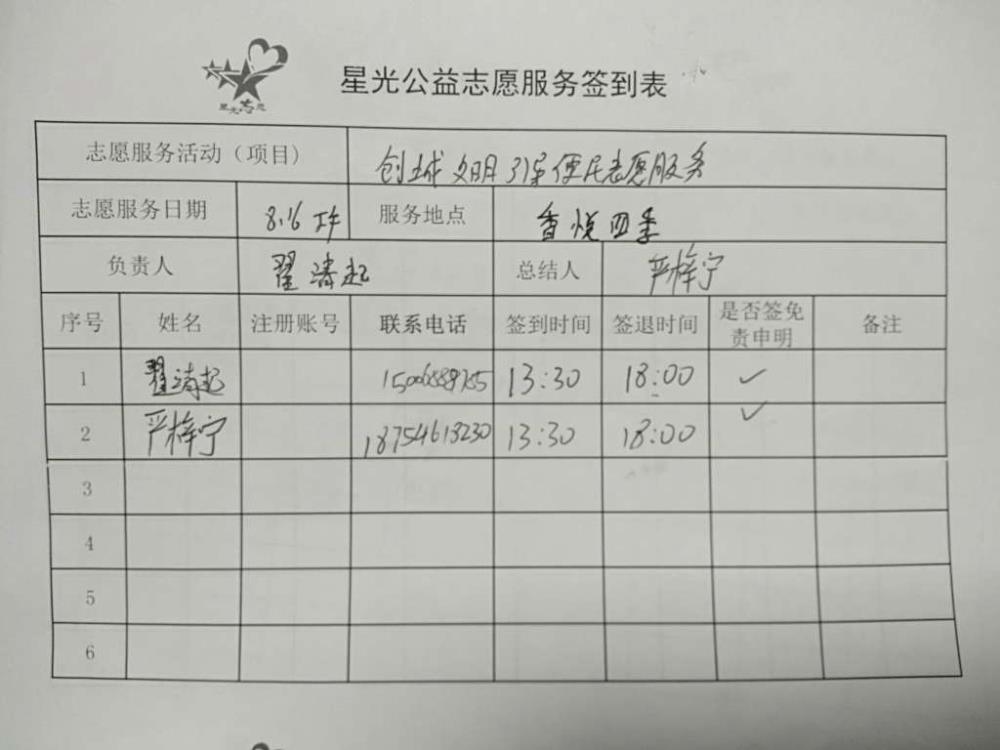 星光志愿
星光公益志愿服务签到表
志愿服务活动（项目） 创城文明引导便民志愿服务
志愿服务日期 8.16 下午 服务地点 香悦四季
负责人 翟涛起 总结人 严梓宁
序号 姓名 注册账号 联系电话 签到时间 签退时间 是否签免责申明 备注
1 翟涛起 13:30 18:00 ✓
2 严梓宁 18754613230 13:30 18:00 ✓
3
4
5
6